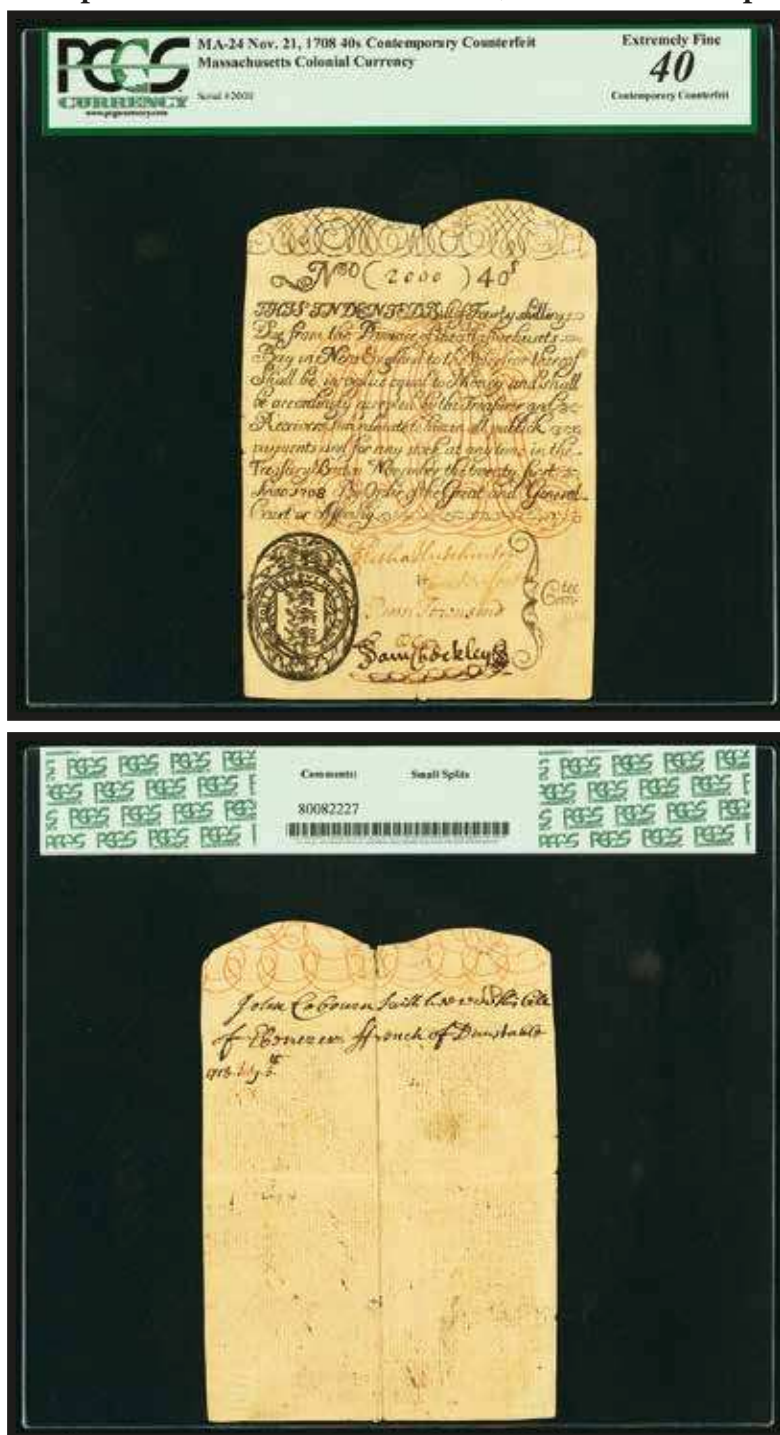 MA-24 Nov. 21, 1708 40s Contemporary Counterfeit
Massachusetts Colonial Currency
Serial #2000
PCGS
CURRENCY
www.pcgscurrency.com
Extremely Fine
40
Contemporary Counterfeit
No ( 2000 ) 40s
THIS INDENTED Bill of Fourty shillings
Due from the Province of the Massachusets
Bay in New England to the Possessor thereof
Shall be in value equal to Money and shall
be accordingly accepted by the Treasurer and
Receivers subordinate to him in all publick
payments and for any stock at any time in the
Treasury Boston November the twenty first
Anno 1708 By Order of the Great and General
Court or Assembly
Elisha Hutchinson
Penn Townsend
Sam Checkley
Comtee
PCGS PCGS PCGS PCGS
Comments: Small Splits
80082227
PCGS PCGS PCGS PCGS
John Cobourn saith he recd this bile
of Ebenezer ffrench of Dunstable